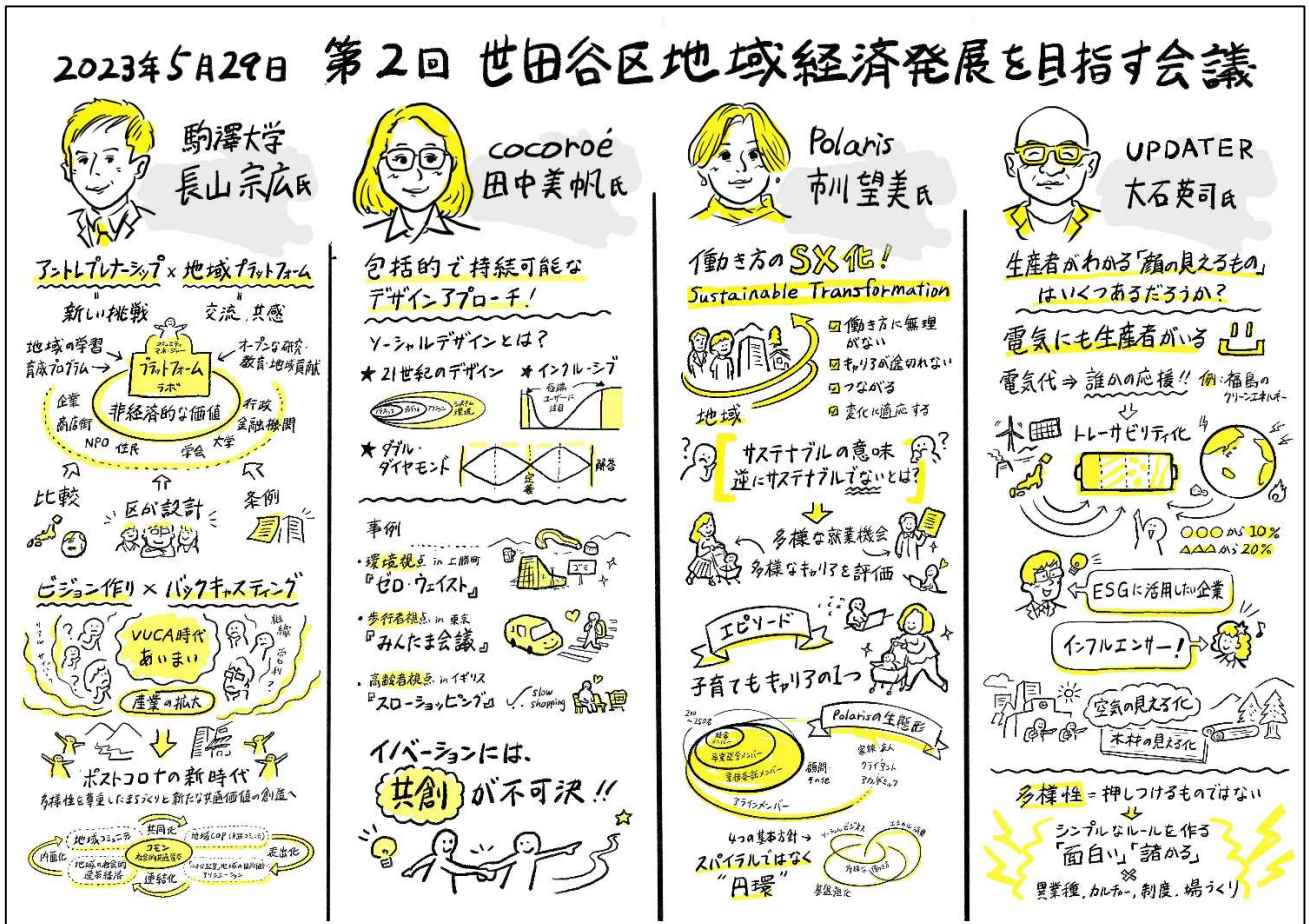 2023年5月29日 第2回 世田谷区地域経済発展を目指す会議
駒澤大学
長山宗広氏
アントレプレナーシップ×地域プラットフォーム
新しい挑戦
交流,共感
コミュニティ
マネージャー
プラットフォーム
ラボ
地域の学習
育成プログラム
オープンな研究・
教育・地域貢献
非経済的な価値
企業
商店街
NPO
住民
学会
大学
行政
金融機関
比較
区が設計
条例
ビジョン作り×バックキャスティング
VUCA時代
あいまい
組織
産業の拡大
ポストコロナの新時代
多様性を尊重したまちづくりと新たな共通価値の創造へ
地域コミュニティ
共同化
内面化
コモン
社会的共通資本
表出化
連結化
cocoroé
田中美帆氏
包括的で持続可能な
デザインアプローチ!
ソーシャルデザインとは?
★21世紀のデザイン
システム
環境
★インクルーシブ
極端
ユーザーに
注目
★ダブル・
ダイヤモンド
定義
解答
事例
・環境視点 in 上勝町
『ゼロ・ウェイスト』
ゴミ
・歩行者視点 in 東京
『みんたま会議』
・高齢者視点 in イギリス
『スローショッピング』
slow
shopping
イノベーションには、
共創が不可決!!
Polaris
市川望美氏
働き方のSX化!
Sustainable Transformation
働き方に無理
がない
キャリアが途切れない
つながる
変化に適応する
地域
サステナブルの意味
逆にサステナブルでないとは?
多様な就業機会
多様なキャリアを評価
エピソード
子育てもキャリアの1つ
Polarisの生態形
200
〜250名
業務委託メンバー
顧問・
その他
家族・友人
クライアント
アカデミック
アラインメンバー
4つの基本方針→
スパイラルではなく
"円環"
ソーシャルビジネス
基盤進化
UPDATER
大石英司氏
生産者がわかる「顔の見えるもの」
はいくつあるだろうか?
電気にも生産者がいる
電気代⇒誰かの応援!!
例:福島の
クリーンエネルギー
トレーサビリティ化
○○○から10%
△△△から20%
ESGに活用したい企業
インフルエンサー!
空気の見える化
木材の見える化
多様性=押しつけるものではない
シンプルなルールを作る
「面白い」「諸かる」
×
異業種,カルチャー,制度,場づくり